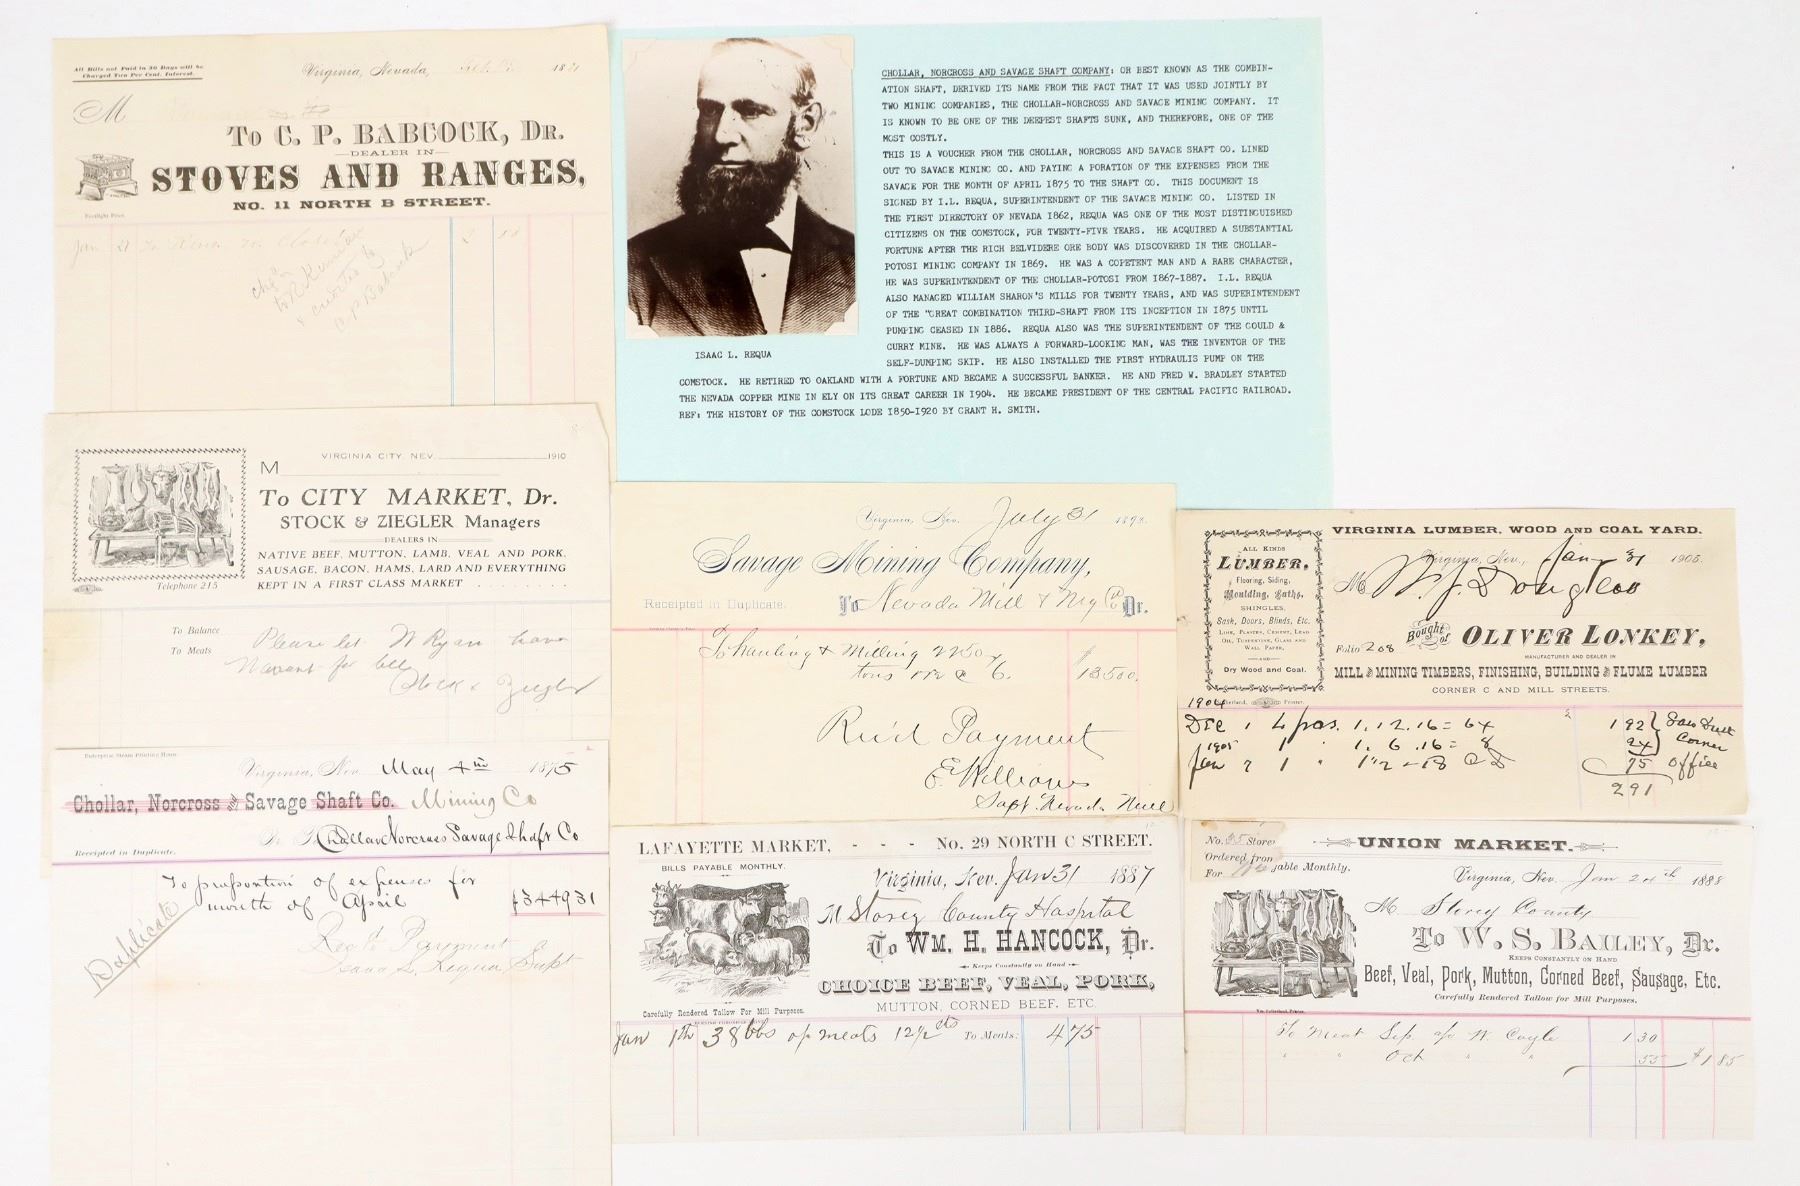 All Bills not Paid in 30 Days will be
Charged Two Per Cent. Interest.
Virginia, Nevada, 1881
M
To C. P. BABCOCK, Dr.
DEALER IN
STOVES AND RANGES,
NO. 11 NORTH B STREET.
Jan 21 To
chgd
to R
& credited to
C P Babcock
CHOLLAR, NORCROSS AND SAVAGE SHAFT COMPANY: OR BEST KNOWN AS THE COMBIN-
ATION SHAFT, DERIVED ITS NAME FROM THE FACT THAT IT WAS USED JOINTLY BY
TWO MINING COMPANIES, THE CHOLLAR-NORCROSS AND SAVAGE MINING COMPANY. IT
IS KNOWN TO BE ONE OF THE DEEPEST SHAFTS SUNK, AND THEREFORE, ONE OF THE
MOST COSTLY.
THIS IS A VOUCHER FROM THE CHOLLAR, NORCROSS AND SAVAGE SHAFT CO. LINED
OUT TO SAVAGE MINING CO. AND PAYING A PORATION OF THE EXPENSES FROM THE
SAVAGE FOR THE MONTH OF APRIL 1875 TO THE SHAFT CO. THIS DOCUMENT IS
SIGNED BY I.L. REQUA, SUPERINTENDENT OF THE SAVAGE MINING CO. LISTED IN
THE FIRST DIRECTORY OF NEVADA 1862, REQUA WAS ONE OF THE MOST DISTINGUISHED
CITIZENS ON THE COMSTOCK, FOR TWENTY-FIVE YEARS. HE ACQUIRED A SUBSTANTIAL
FORTUNE AFTER THE RICH BELVIDERE ORE BODY WAS DISCOVERED IN THE CHOLLAR-
POTOSI MINING COMPANY IN 1869. HE WAS A COPETENT MAN AND A RARE CHARACTER,
HE WAS SUPERINTENDENT OF THE CHOLLAR-POTOSI FROM 1867-1887. I.L. REQUA
ALSO MANAGED WILLIAM SHARON'S MILLS FOR TWENTY YEARS, AND WAS SUPERINTENDENT
OF THE "GREAT COMBINATION THIRD-SHAFT FROM ITS INCEPTION IN 1875 UNTIL
PUMPING CEASED IN 1886. REQUA ALSO WAS THE SUPERINTENDENT OF THE GOULD &
CURRY MINE. HE WAS ALWAYS A FORWARD-LOOKING MAN, WAS THE INVENTOR OF THE
SELF-DUMPING SKIP. HE ALSO INSTALLED THE FIRST HYDRAULIS PUMP ON THE
COMSTOCK. HE RETIRED TO OAKLAND WITH A FORTUNE AND BECAME A SUCCESSFUL BANKER. HE AND FRED W. BRADLEY STARTED
THE NEVADA COPPER MINE IN ELY ON ITS GREAT CAREER IN 1904. HE BECAME PRESIDENT OF THE CENTRAL PACIFIC RAILROAD.
REF: THE HISTORY OF THE COMSTOCK LODE 1850-1920 BY GRANT H. SMITH.
ISAAC L. REQUA
VIRGINIA CITY, NEV. 1910
M
To CITY MARKET, Dr.
STOCK & ZIEGLER Managers
DEALERS IN
NATIVE BEEF, MUTTON, LAMB, VEAL AND PORK,
SAUSAGE, BACON, HAMS, LARD AND EVERYTHING
KEPT IN A FIRST CLASS MARKET
Telephone 215
To Balance
To Meats
Please let W Ryan have
Warrant for bill
Stock & Ziegler
Enterprise Steam Printing House.
Virginia, Nev. May 4th 1875
Chollar, Norcross and Savage Shaft Co. Mining Co
To Chollar Norcross Savage Shaft Co
Receipted in Duplicate.
To proportion of expenses for
month of April $344931
Duplicate
Rec'd Payment
Isaac L. Requa Supt
Virginia, Nev. July 31 189
Savage Mining Company,
Receipted in Duplicate. To Nevada Mill & Mfg Co Dr.
To hauling & Milling 2250
tons ore @ 6. $13500.
Rec'd Payment
E. Williams
Supt. Nevada Mill
VIRGINIA LUMBER, WOOD AND COAL YARD.
ALL KINDS
LUMBER,
Flooring, Siding,
Moulding, Laths,
SHINGLES,
Sash, Doors, Blinds, Etc.
LIME, PLASTER, CEMENT, LEAD
OIL, TURPENTINE, GLASS AND
WALL PAPER,
AND
Dry Wood and Coal.
Virginia, Nev., Jan 31 1905.
M W. J. Douglass
Folio 208
Bought of OLIVER LONKEY,
MANUFACTURER AND DEALER IN
MILL AND MINING TIMBERS, FINISHING, BUILDING AND FLUME LUMBER
CORNER C AND MILL STREETS.
1904
Dec 1 4 pcs. 1.12.16 = 64 192
1905 1 " 1. 6 .16 = 8 24
Jan 7 1 " 75 Office
291
LAFAYETTE MARKET, - - - No. 29 NORTH C STREET.
BILLS PAYABLE MONTHLY.
Virginia, Nev. Jan 31 1887
M Storey County Hospital
To WM. H. HANCOCK, Dr.
Keeps Constantly on Hand
CHOICE BEEF, VEAL, PORK,
MUTTON, CORNED BEEF, ETC.
Carefully Rendered Tallow For Mill Purposes.
Jan 1th 38 lbs of meats 12½ cts To Meals: 4 75
UNION MARKET.
No. 35 Store
Ordered from
For
able Monthly.
Virginia, Nev. Jan 24th 1888
M Storey County
To W. S. BAILEY, Dr.
KEEPS CONSTANTLY ON HAND
Beef, Veal, Pork, Mutton, Corned Beef, Sausage, Etc.
Carefully Rendered Tallow for Mill Purposes.
To Meat Sep a/c W. Coyle 1 30
" " Oct " " 55 $1 85